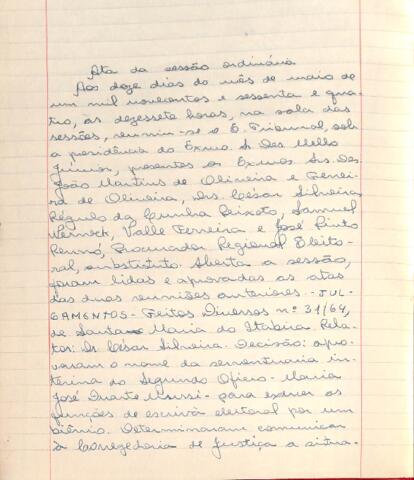 Ata da sessão ordinária
Aos doze dias do mês de maio de
um mil novecentos e sessenta e qua-
tro, às dezessete horas, na sala das
sessões, reuniu-se o E. Tribunal, sob
a presidência do Exmo Sr. Des Mello
Junior, presentes os Exmos Srs. Des.
João Martins de Oliveira e Ferrei-
ra de Oliveira, Drs. César Silveira
Régulo da Cunha Peixoto, Samuel
Werneck, Valle Ferreira e José Pinto
Rennó, Procurador Regional Eleito-
ral, substituto. Aberta a sessão,
foram lidas e aprovadas as atas
das duas reuniões anteriores. - JUL-
GAMENTOS - Feitos Diversos nº 31/64,
de Santa Maria do Itabira. Rela-
tor: Dr. César Silveira. Decisão: apro-
varam o nome da serventuária in-
terina do Segundo Ofício - Maria
José Duarte - para exercer as
funções de escrivã eleitoral por um
biênio. Determinaram comunicar
à Corregedoria de Justiça a situa-